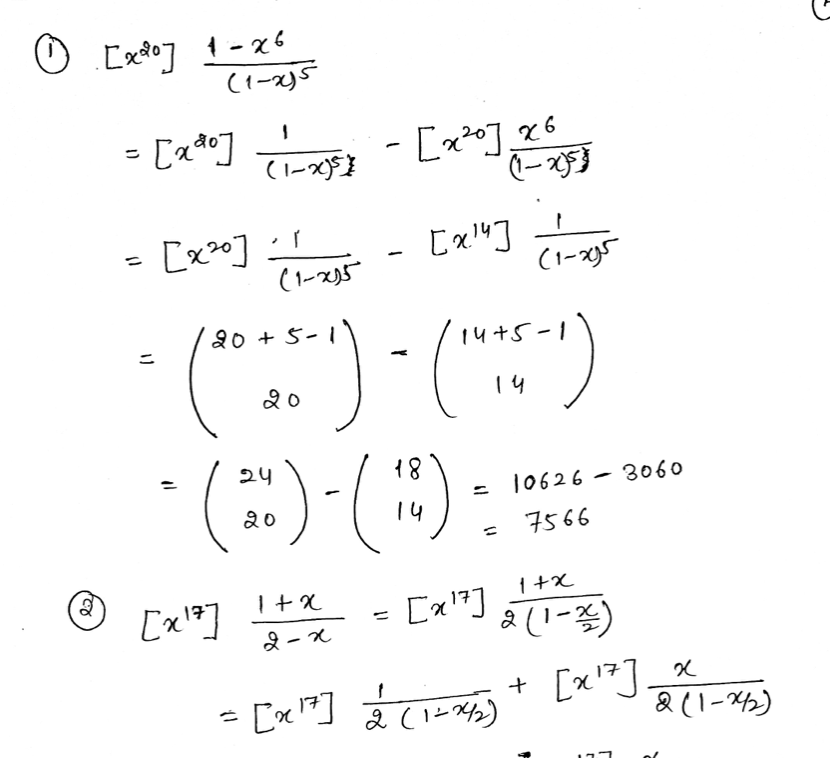 ① [x^20] (1 - x^6)/((1-x)^5)
= [x^20] 1/((1-x)^5) - [x^20] x^6/((1-x)^5)
= [x^20] 1/((1-x)^5) - [x^14] 1/((1-x)^5)
= (20 + 5 - 1 over 20) - (14 + 5 - 1 over 14)
= (24 over 20) - (18 over 14) = 10626 - 3060
= 7566
② [x^17] (1 + x)/(2 - x) = [x^17] (1+x)/(2(1 - x/2))
= [x^17] 1/(2(1-x/2)) + [x^17] x/(2(1-x/2))